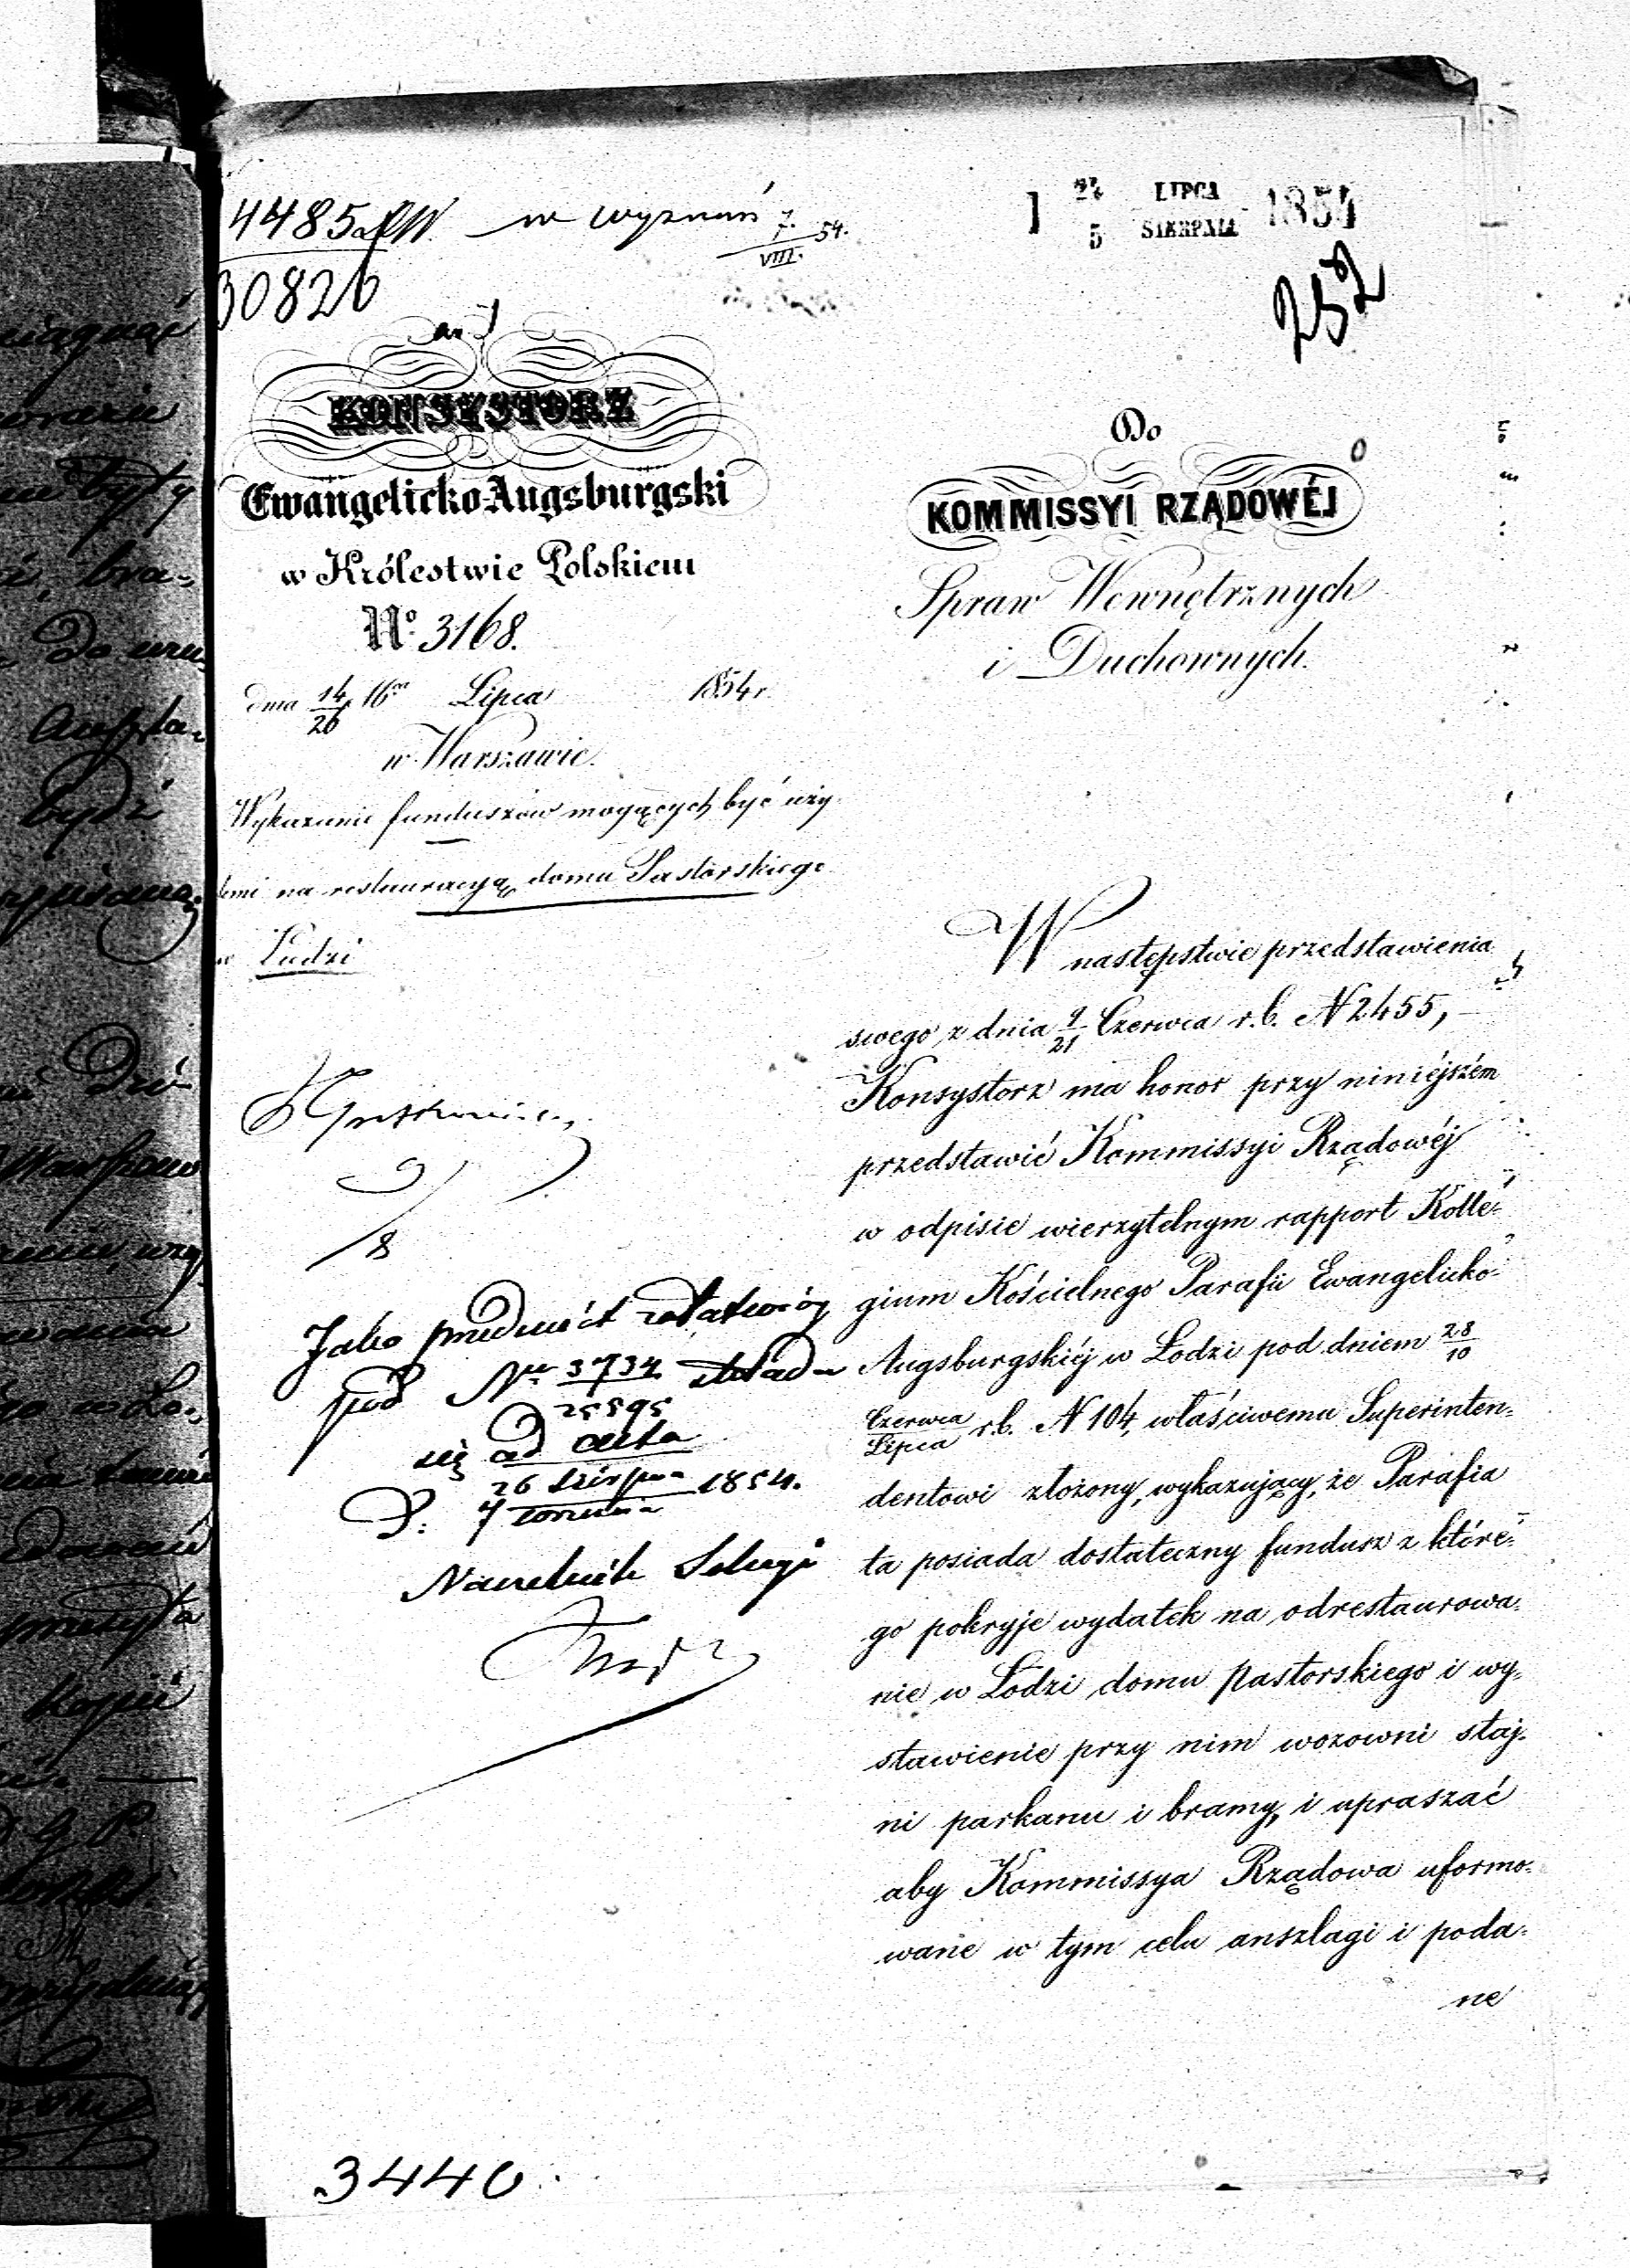 4485
30826
w wyznań 7./VIII. 54.
1 24/5 LIPCA/SIERPNIA 1854
252
KONSYSTORZ
Ewangelicko-Augsburgski
w Królestwie Polskiem
No. 3168.
dnia 14/26 Lipca 1854 r.
w Warszawie.
Wykazanie funduszów mogących być uży-
temi na restauracyą domu Pastorskiego
w Łodzi
Jako przedmiot załatwiony
pod Nr. 3734/25595 składa
się ad acta
D. 26 Sierpnia/7 Września 1854.
Naczelnik Sekcyi
Do
KOMMISSYI RZĄDOWÉJ
Spraw Wewnętrznych
i Duchownych.
W następstwie przedstawienia
swego z dnia 9/21 Czerwca r.b. N 2455,
Konsystorz ma honor przy niniéjszém
przedstawić Kommissyi Rządowéj
w odpisie wierzytelnym rapport Kolle-
gium Kościelnego Parafii Ewangelicko-
Augsburgskiéj w Łodzi pod dniem 28/10
Czerwca/Lipca r.b. N 104, właściwemu Superinten-
dentowi złożony, wykazujący, że Parafia
ta posiada dostateczny fundusz z które-
go pokryje wydatek na odrestaurowa-
nie w Łodzi domu pastorskiego i wy-
stawienie przy nim wozowni staj-
ni parkanu i bramy, i upraszać
aby Kommissya Rządowa uformo-
wane w tym celu anszlagi i poda-
ne
3440